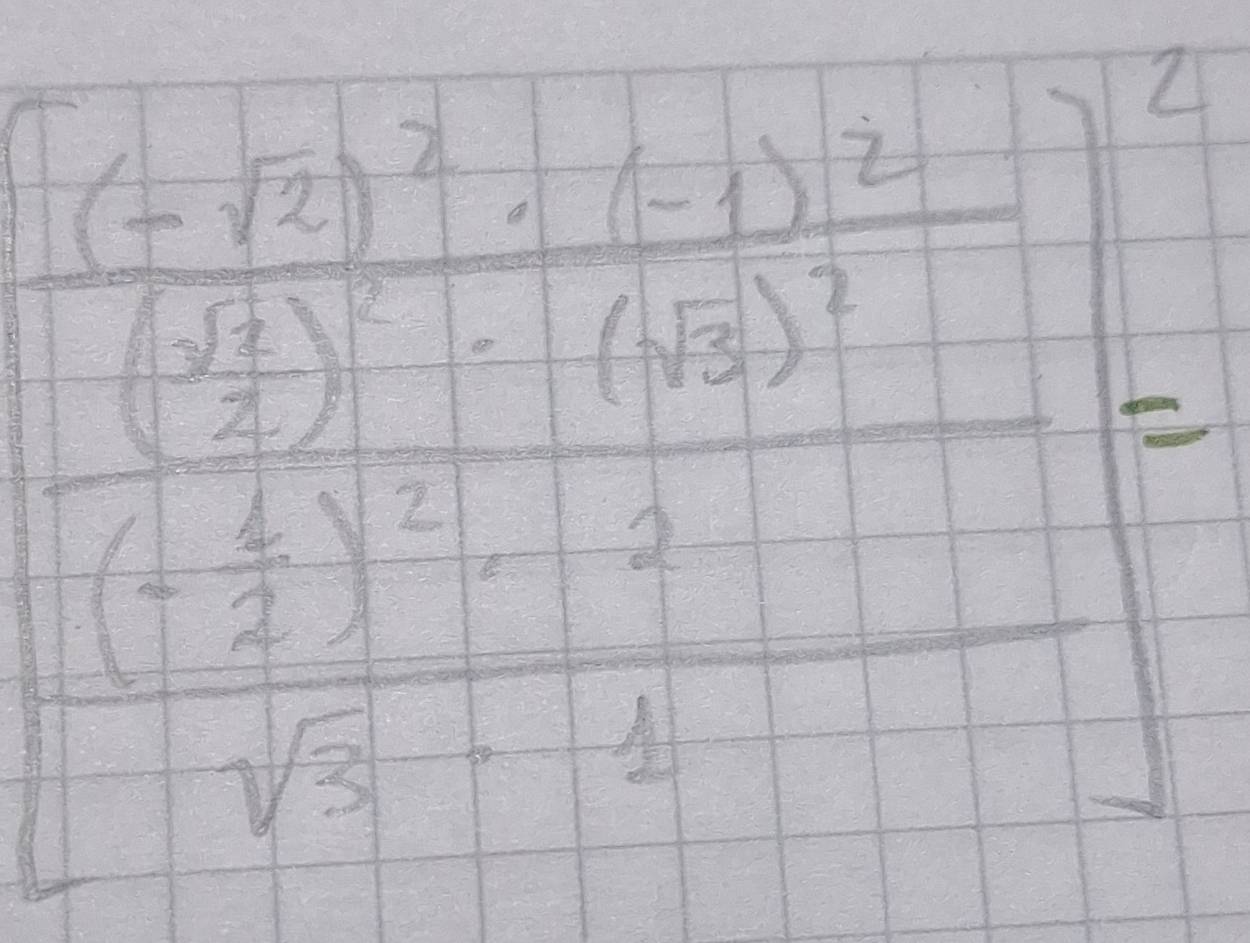 [ (-√2)² · (-1)²
(√2/2)² · (√3)²
(-1/2)² · 2
√3 · 1 ]² =